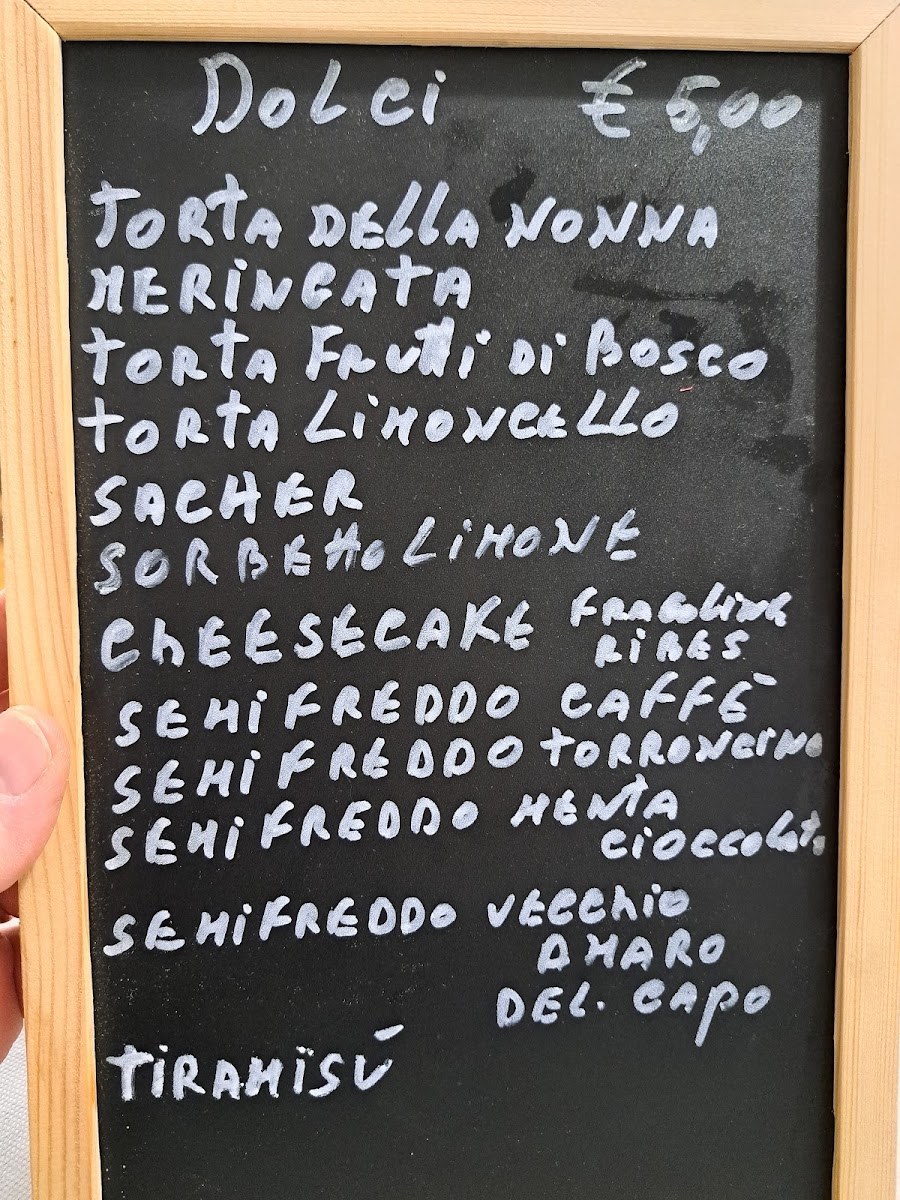 Dolci € 5,00
TORTA DELLA NONNA
MERINGATA
TORTA FRUTTI DI BOSCO
TORTA LIMONCELLO
SACHER
SORBETTO LIMONE
CHEESECAKE FRAGOLINE
RIBES
SEMIFREDDO CAFFÈ
SEMIFREDDO TORRONCINO
SEMIFREDDO MENTA
CIOCCOLATO
SEMIFREDDO VECCHIO
AMARO
DEL. CAPO
TIRAMISÚ